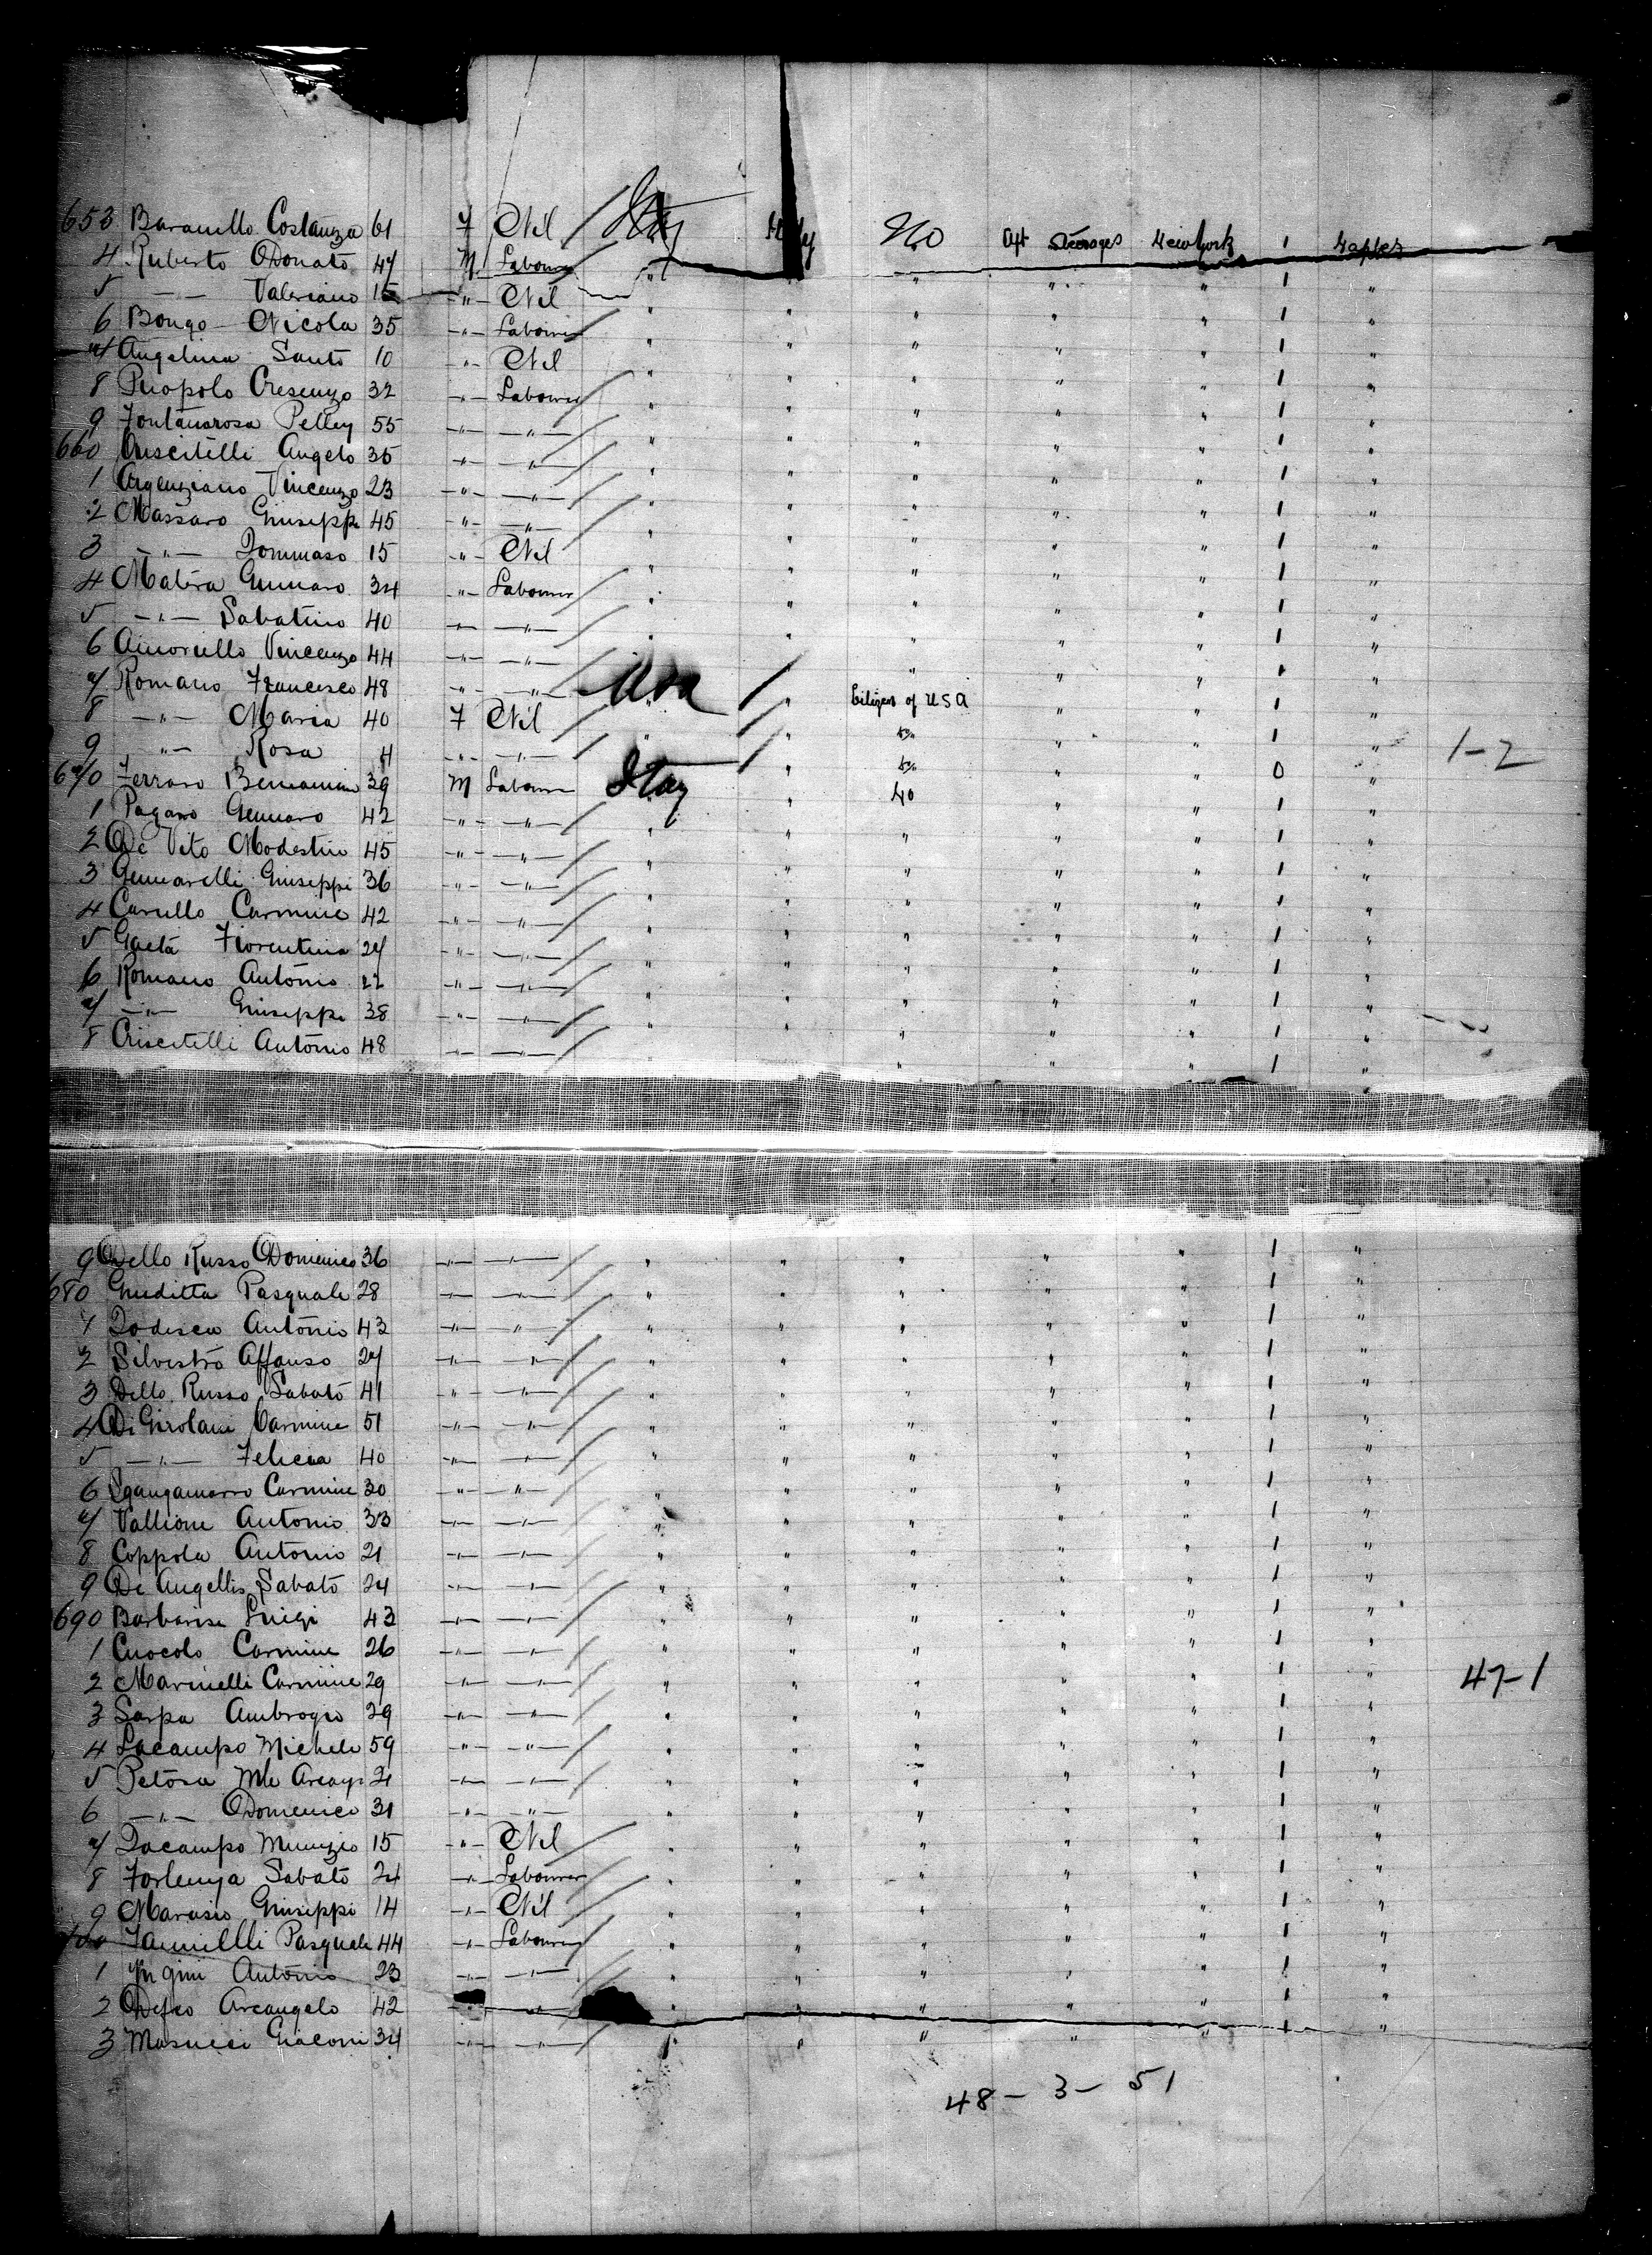 653 Baraniello Costanza 61 F Nil Italy Italy No Aft Steerages New York 1 Naples
4 Ruberto Donato 47 M Labourer " " " " 1 "
5 -"- Valeriano 15 -"- Nil " " " " " 1 "
6 Bongo Nicola 35 -"- Labourer " " " " " 1 "
7 Angelina Santo 10 -"- Nil " " " " " 1 "
8 Puopolo Cresenzo 32 -"- Labourer " " " " " 1 "
9 Fontanarosa Pelleg 55 -"- -"- " " " " " 1 "
660 Criscitelli Angelo 35 -"- -"- " " " " " 1 "
1 Argenziano Vincenzo 23 -"- -"- " " " " " 1 "
2 Massaro Giuseppe 45 -"- -"- " " " " " 1 "
3 -"- Tommaso 15 -"- Nil " " " " " 1 "
4 Matera Gennaro 34 -"- Labourer " " " " " 1 "
5 -"- Sabatino 40 -"- -"- " " " " " 1 "
6 Amoriello Vincenzo 44 -"- -"- " " " " 1 "
7 Romano Francesco 48 -"- -"- USA " Citizen of USA " " 1 "
8 -"- Maria 40 F Nil " " do " " 1 "
9 -"- Rosa 4 -"- -"- " do " " 0 " 1-2
670 Ferraro Beniamino 39 M Labourer Italy " No " " 1 "
1 Pagano Gennaro 42 -"- -"- " " " " " 1 "
2 De Vito Modestino 45 -"- -"- " " " " " 1 "
3 Gennarelli Giuseppi 36 -"- -"- " " " " " 1 "
4 Carullo Carmine 42 -"- -"- " " " " " 1 "
5 Gaeta Fiorentino 27 -"- -"- " " " " " 1 "
6 Romano Antonio 22 -"- -"- " " " " " 1 "
7 -"- Giuseppe 38 -"- -"- " " " " " 1 "
8 Criscitelli Antonio 48 -"- -"- " " " 1 "
9 Dello Russo Domenico 36 -"- -"- " " " " " 1 "
680 Giuditta Pasquale 28 -"- -"- " " " " " 1 "
1 Todisca Antonio 43 -"- -"- " " " " " 1 "
2 Silvestro Affonso 27 -"- -"- " " " " " 1 "
3 Dello Russo Sabato 41 -"- -"- " " " " " 1 "
4 Di Girolami Carmine 51 -"- -"- " " " " " 1 "
5 -"- Felicia 40 -"- -"- " " " " " 1 "
6 Sgangamarro Carmine 30 -"- -"- " " " " " 1 "
7 Vallione Antonio 33 -"- -"- " " " " " 1 "
8 Coppola Antonio 21 -"- -"- " " " " " 1 "
9 De Angellis Sabato 24 -"- -"- " " " " " 1 "
690 Barbarise Luigi 43 -"- -"- " " " " " 1 "
1 Cuocolo Carmine 26 -"- -"- " " " " " 1 "
2 Marinelli Carmine 29 -"- -"- " " " " " 1 " 47-1
3 Sarpa Ambrogio 29 -"- -"- " " " " " 1 "
4 Lacampo Michele 59 -"- -"- " " " " " 1 "
5 Petosa 21 -"- -"- " " " " " 1 "
6 -"- Domenico 31 -"- -"- " " " " " 1 "
7 Iacampo Nunzio 15 -"- Nil " " " " " 1 "
8 Forlenza Sabato 24 -"- Labourer " " " " " 1 "
9 Marusio Giuseppi 14 -"- Nil " " " " " 1 "
700 Iannillli Pasquale 44 -"- Labourer " " " " " 1 "
1 Antonio 23 -"- -"- " " " " " 1 "
2 Defeo Arcangelo 42 -"- " " " " " 1 "
3 Masucci Giacomi 34 -"- -"- " " " " " 1 "
48 - 3 - 51